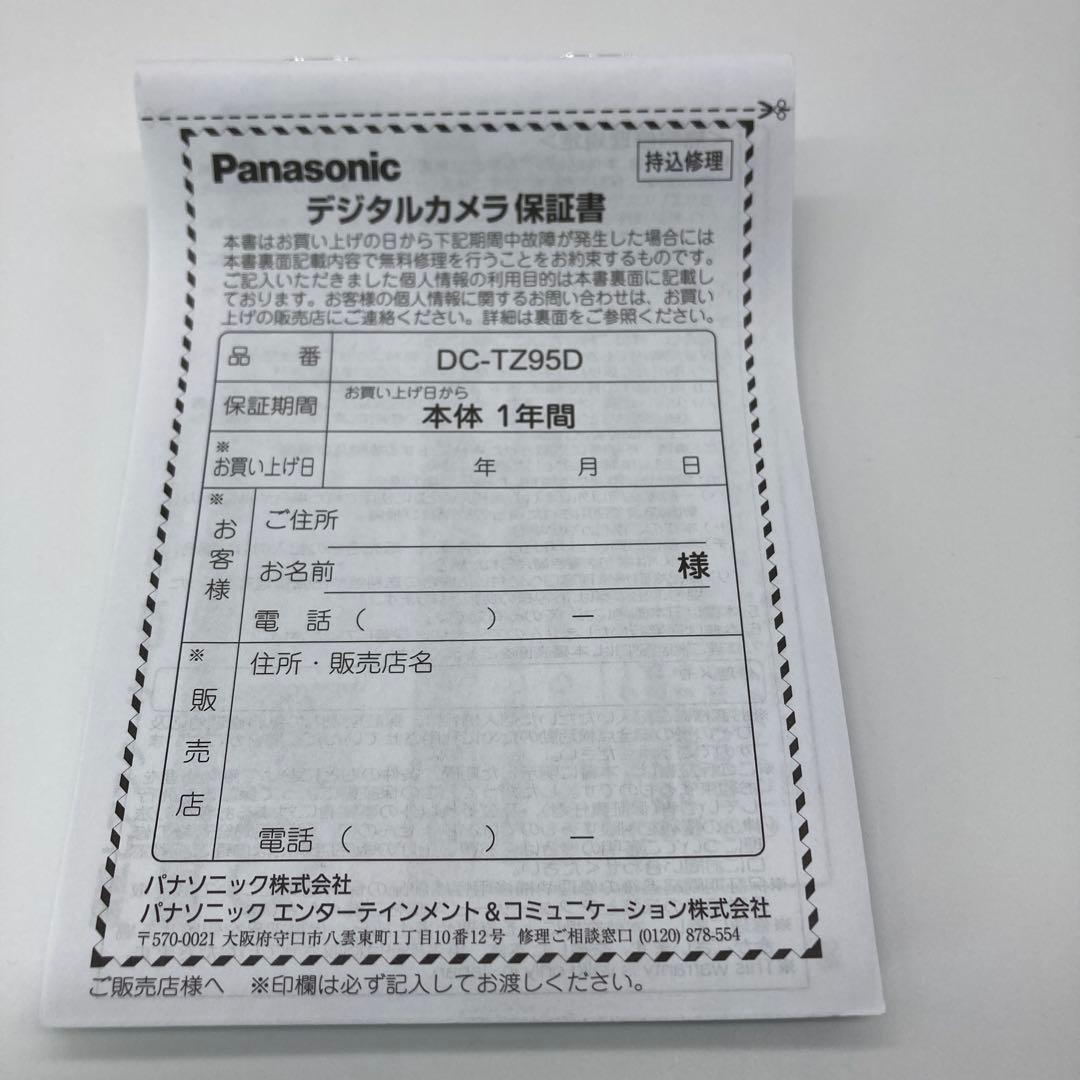 Panasonic
持込修理
デジタルカメラ保証書
本書はお買い上げの日から下記期間中故障が発生した場合には
本書裏面記載内容で無料修理を行うことをお約束するものです。
ご記入いただきました個人情報の利用目的は本書裏面に記載し
ております。お客様の個人情報に関するお問い合わせは、お買い
上げの販売店にご連絡ください。詳細は裏面をご参照ください。
品 番 DC-TZ95D
保証期間 お買い上げ日から
本体 1年間
※
お買い上げ日 年 月 日
※
お客様
ご住所
お名前 様
電 話 ( ) ー
※
販売店
住所・販売店名
電話 ( ) ー
パナソニック株式会社
パナソニック エンターテインメント&コミュニケーション株式会社
〒570-0021 大阪府守口市八雲東町1丁目10番12号 修理ご相談窓口 (0120) 878-554
ご販売店様へ ※印欄は必ず記入してお渡しください。